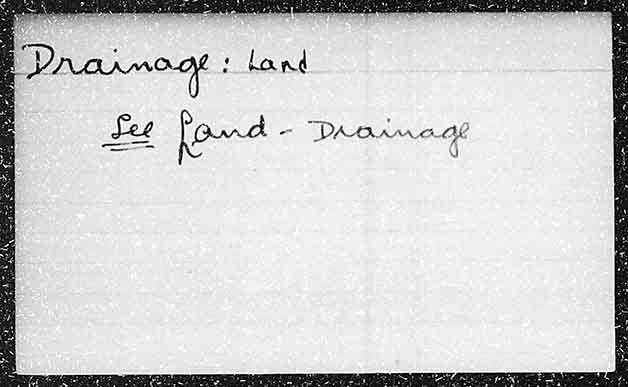 Drainage: Land
See Land - Drainage